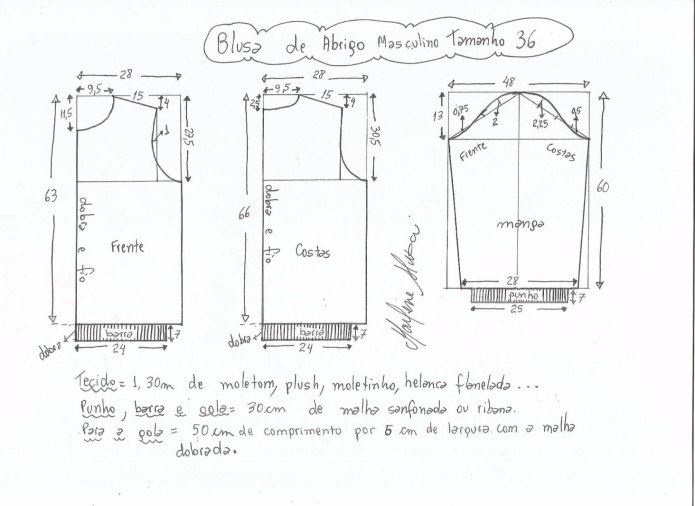 Blusa de Abrigo Masculino Tamanho 36
28
9,5
15
4
11,5
1
27,5
63
dobra e fio
Frente
dobra
barra
7
24
28
9,5
15
2,5
4
30,5
66
dobra e fio
Costas
dobra
barra
7
24
48
13
0,75
2
2,25
0,5
Frente
Costas
60
manga
28
punho
7
25
Marlene Mukai
Tecido = 1,30m de moletom, plush, moletinho, helanca flanelada ...
Punho, barra e gola = 30cm de malha sanfonada ou ribana.
Para a gola = 50 cm de comprimento por 5 cm de largura com a malha
dobrada.